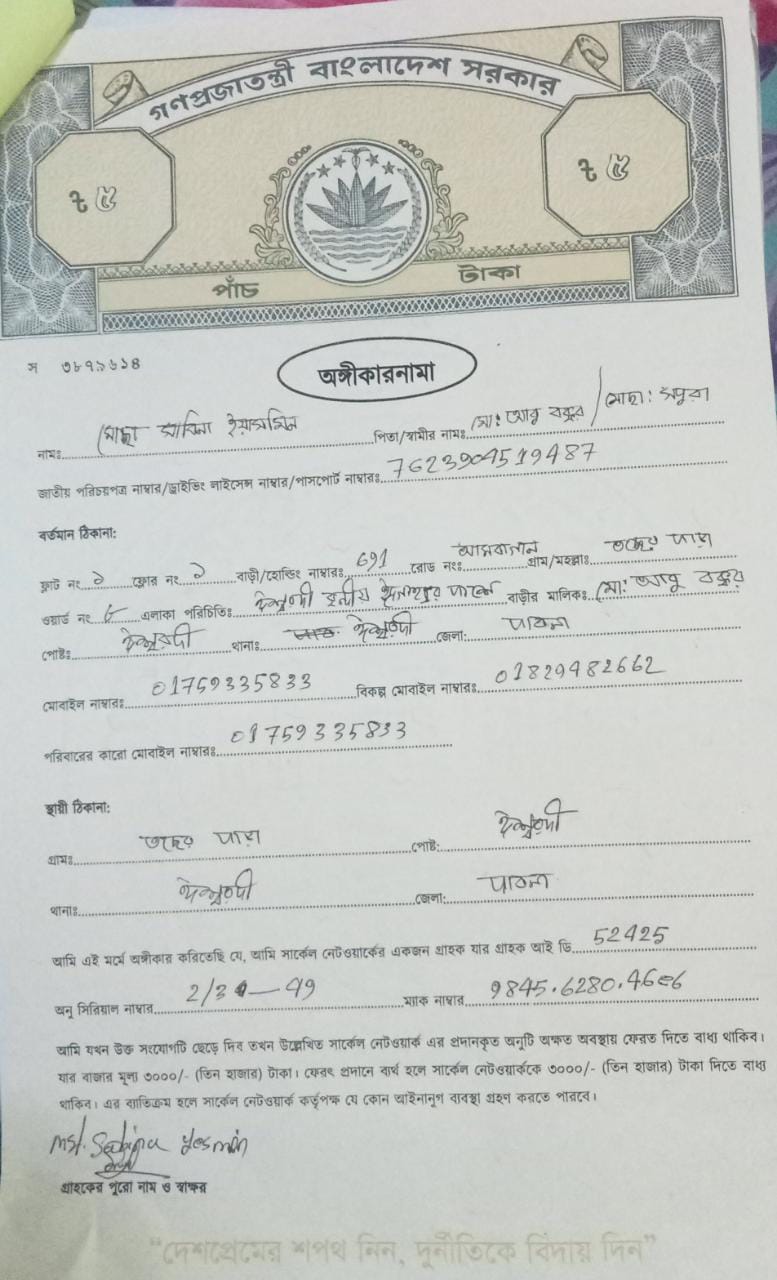 গণপ্রজাতন্ত্রী বাংলাদেশ সরকার
৳ ৫ ৳ ৫
পাঁচ টাকা
স ৩৮৭১৬১৪
অঙ্গীকারনামা
নামঃ মোছাঃ সাবিনা ইয়াসমিন পিতা/স্বামীর নামঃ মো: আবু বক্কর / মোছা:
জাতীয় পরিচয়পত্র নাম্বার/ড্রাইভিং লাইসেন্স নাম্বার/পাসপোর্ট নাম্বারঃ 7623904519487
বর্তমান ঠিকানা:
ফ্লাট নং ১ ফ্লোর নং ১ বাড়ী/হোল্ডিং নাম্বারঃ 691 রোড নংঃ আমবাগান গ্রাম/মহল্লাঃ পাড়া
ওয়ার্ড নং ৮ এলাকা পরিচিতিঃ ঈশ্বরদী বাড়ীর মালিকঃ মো: আবু বক্কর
পোষ্টঃ ঈশ্বরদী থানাঃ ঈশ্বরদী জেলা: পাবনা
মোবাইল নাম্বারঃ 01759335833 বিকল্প মোবাইল নাম্বারঃ 01829482662
পরিবারের কারো মোবাইল নাম্বারঃ 01759335833
স্থায়ী ঠিকানা:
গ্রামঃ পাড়া পোষ্ট: ঈশ্বরদী
থানাঃ ঈশ্বরদী জেলা: পাবনা
আমি এই মর্মে অঙ্গীকার করিতেছি যে, আমি সার্কেল নেটওয়ার্কের একজন গ্রাহক যার গ্রাহক আই ডি 52425
অনু সিরিয়াল নাম্বার 2/3 — 49 ম্যাক নাম্বার 9845.6280.46e6
আমি যখন উক্ত সংযোগটি ছেড়ে দিব তখন উল্লেখিত সার্কেল নেটওয়ার্ক এর প্রদানকৃত অনুটি অক্ষত অবস্থায় ফেরত দিতে বাধ্য থাকিব।
যার বাজার মূল্য ৩০০০/- (তিন হাজার) টাকা। ফেরৎ প্রদানে ব্যর্থ হলে সার্কেল নেটওয়ার্ককে ৩০০০/- (তিন হাজার) টাকা দিতে বাধ্য
থাকিব। এর ব্যতিক্রম হলে সার্কেল নেটওয়ার্ক কর্তৃপক্ষ যে কোন আইনানুগ ব্যবস্থা গ্রহণ করতে পারবে।
Mst. Sabina Yesmin
গ্রাহকের পুরো নাম ও স্বাক্ষর
“দেশপ্রেমের শপথ নিন, দুর্নীতিকে বিদায় দিন”